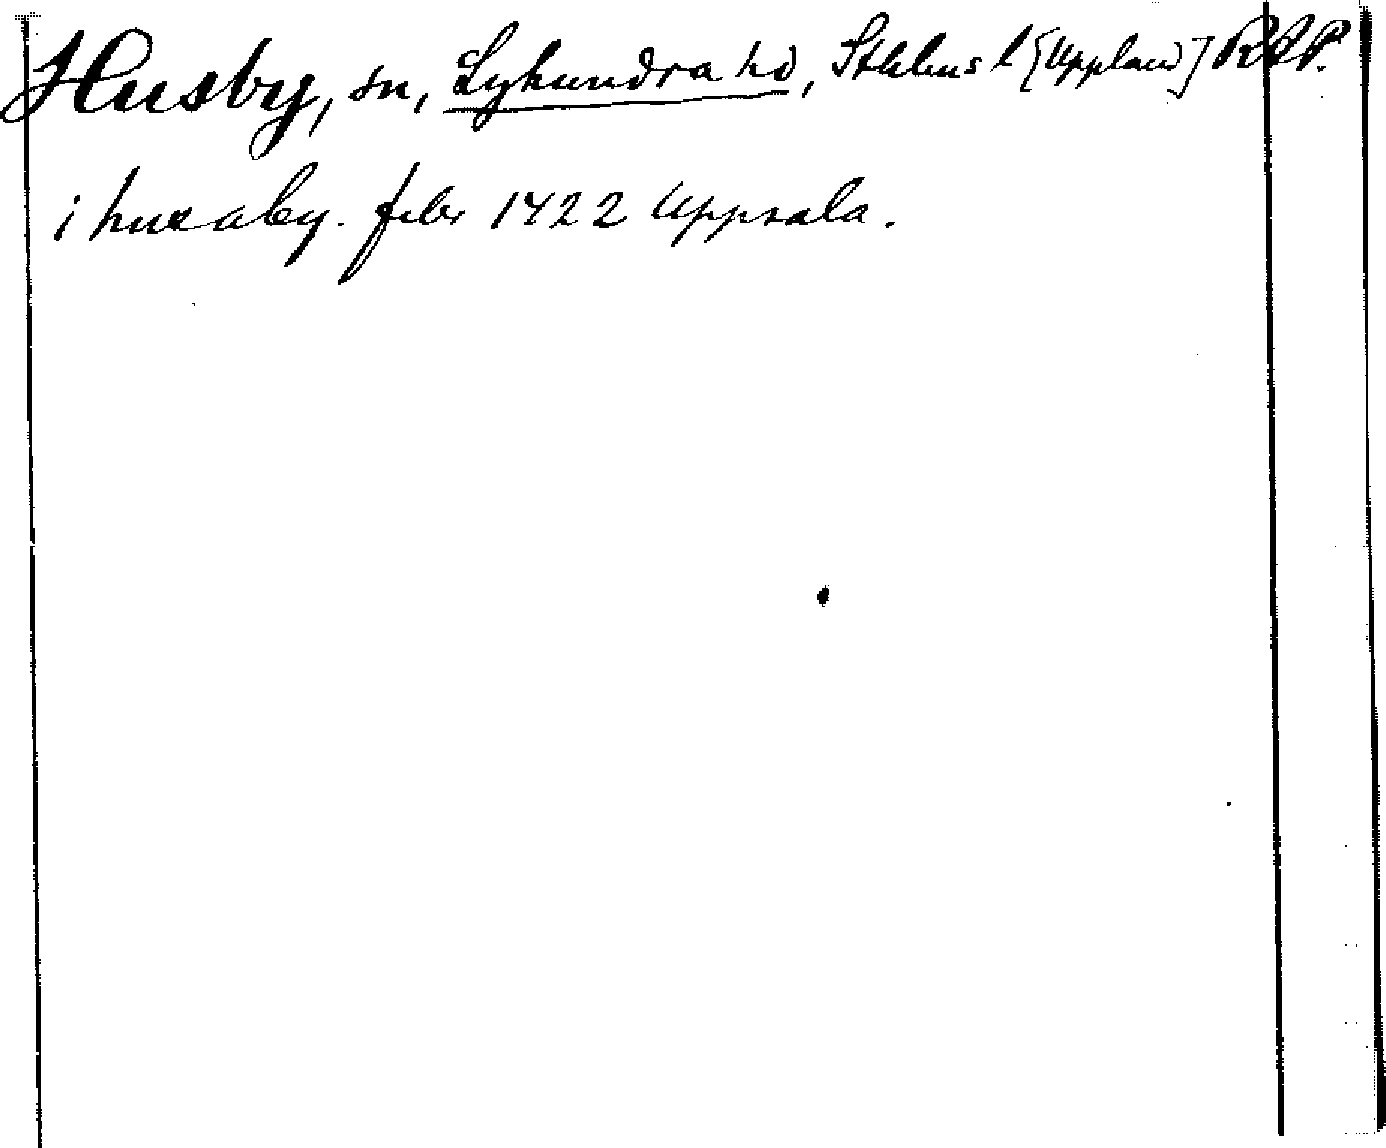 Husby, sn, Lyhundra hd, Sthlms l [Uppland] RAP.
i husaby. febr 1422 Uppsala.